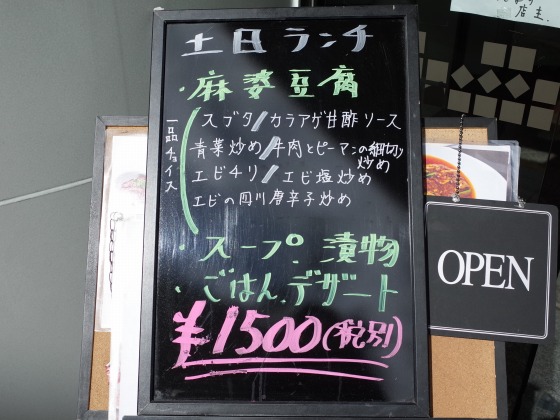 店主
土日ランチ
・麻婆豆腐
一品チョイス
スブタ/カラアゲ甘酢ソース
青菜炒め/牛肉とピーマンの細切り炒め
エビチリ/エビ塩炒め
エビの四川唐辛子炒め
・スープ.漬物
・ごはん.デザート
¥1500(税別)
OPEN